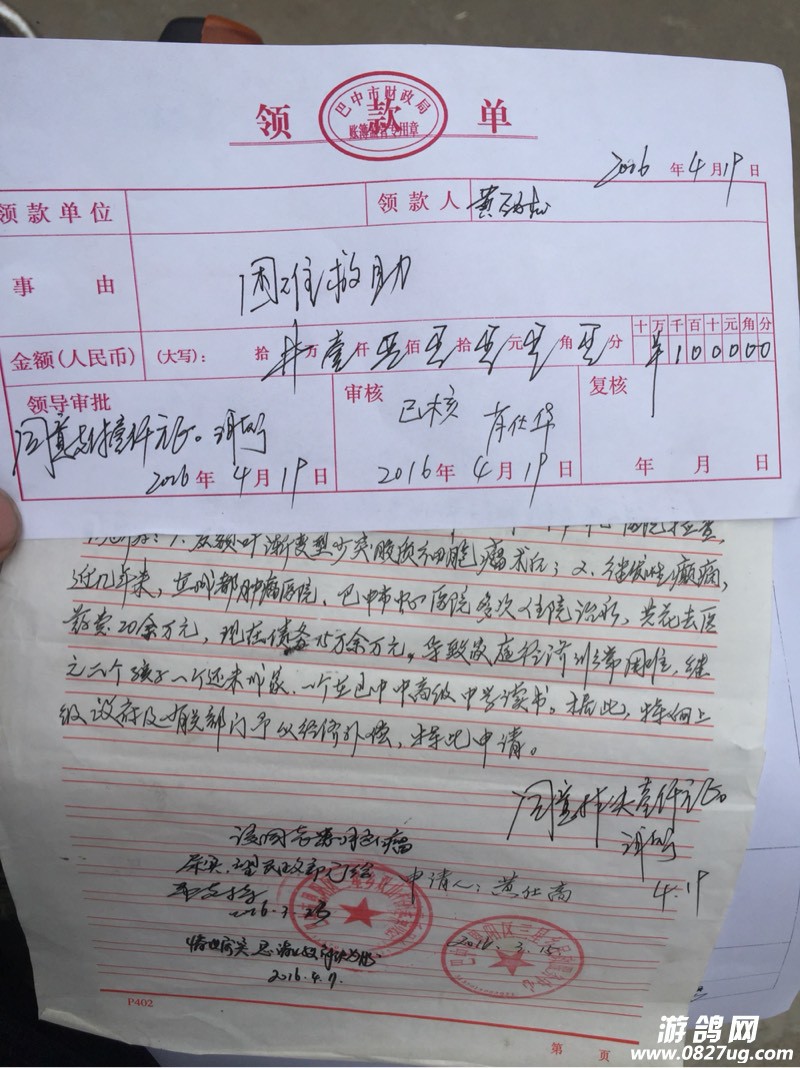 领 款 单
巴中市财政局
账簿 专用章
2016 年 4 月 19 日
领款单位 领款人 黄
事由 困难救助
金额(人民币) (大写): 拾 万 壹 仟 零 佰 零 拾 零 元 零 角 零 分 十 万 千 百 十 元 角 分
¥ 1 0 0 0 0 0
领导审批 审核 复核
同意支付壹仟元正。 已核
2016 年 4 月 19 日 2016 年 4 月 19 日 年 月 日
医院检查,
渐变型少突胶质细胞瘤术后; 2、继发性癫痫,
近几年来, 在成都肿瘤医院、巴中市中心医院多次住院治疗, 共花去医
药费20余万元, 现在债务15万余万元, 导致家庭经济非常困难, 继
元二个孩子一个还未成家、一个在巴中中高级中学读书。据此, 特向上
级政府及有关部门予以经济补偿, 特此申请。
同意解决壹仟元正。
4.19
该同志患
属实, 望民政部门给
予支持
2016.3.23
申请人: 黄仕高
2016.3.15
情况属实
2016.4.7.
P402
第 页
游鸽网
www.0827ug.com